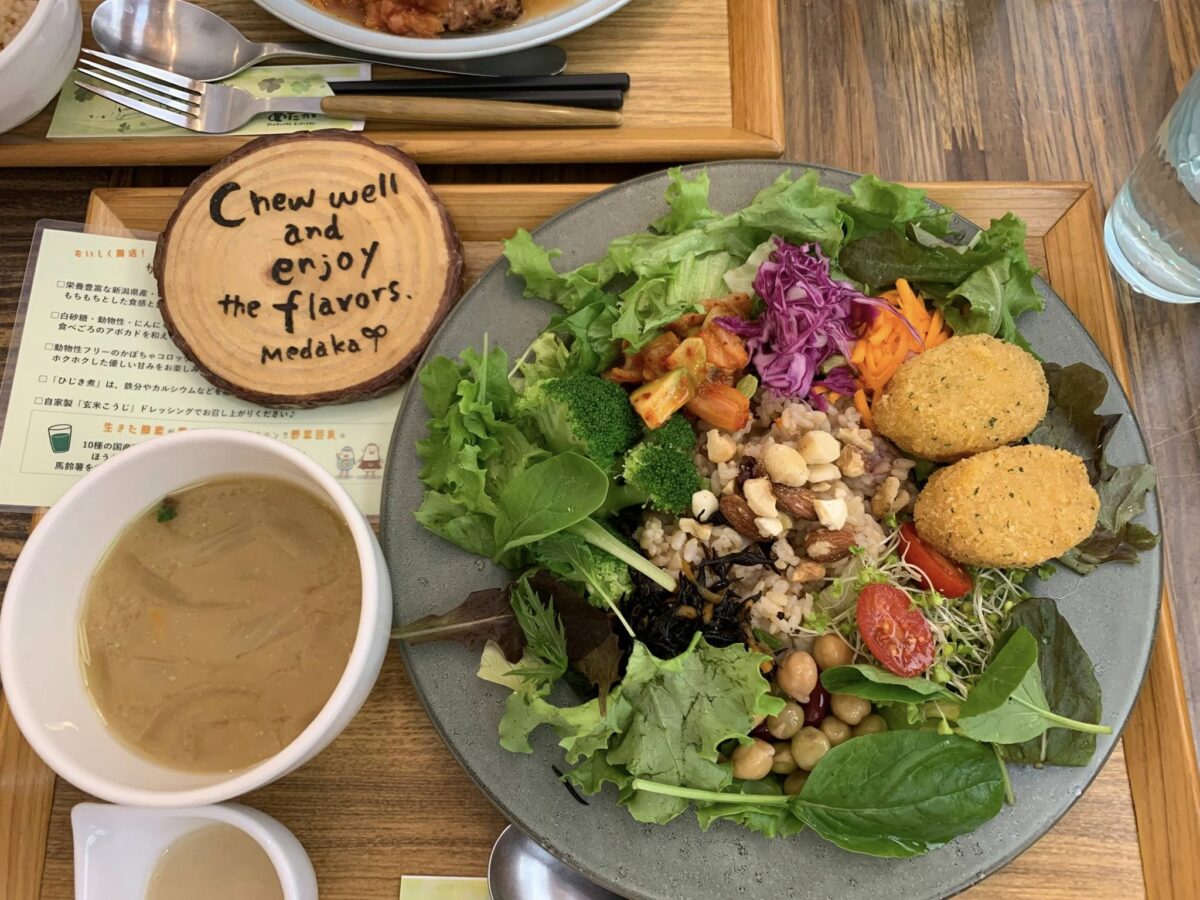 めだか
Chew well
and
enjoy
the flavors.
Medaka
おいしく腸活!
□栄養豊富な新潟県産・
もちもちとした食感と
□白砂糖・動物性・にんに
食べごろのアボカドを和え
□動物性フリーのかぼちゃコロッ
ホクホクした優しい甘みをお楽しみ
□「ひじき煮」は、鉄分やカルシウムなどを
□自家製「玄米こうじ」ドレッシングでお召し上がりください♪
生きた酵素が
野菜豆乳
10種の国産
ほう
馬鈴薯を